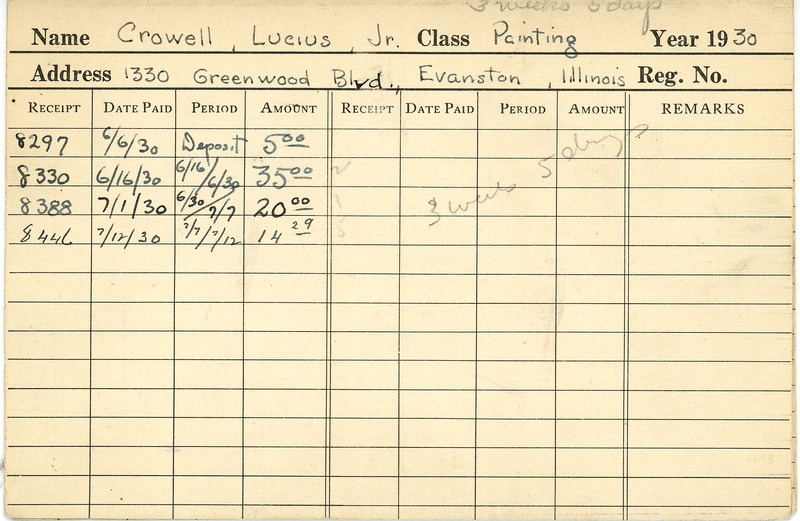 3 weeks 5 days
Name Crowell, Lucius, Jr. Class Painting Year 1930
Address 1330 Greenwood Blvd., Evanston, Illinois Reg. No.
RECEIPT DATE PAID PERIOD AMOUNT RECEIPT DATE PAID PERIOD AMOUNT REMARKS
8297 6/6/30 Deposit 5.00
8330 6/16/30 6/16/6/30 35.00 2
8388 7/1/30 6/30/7/7 20.00 1 3 weeks 5 days
8446 7/12/30 7/7/7/12 14.29 5